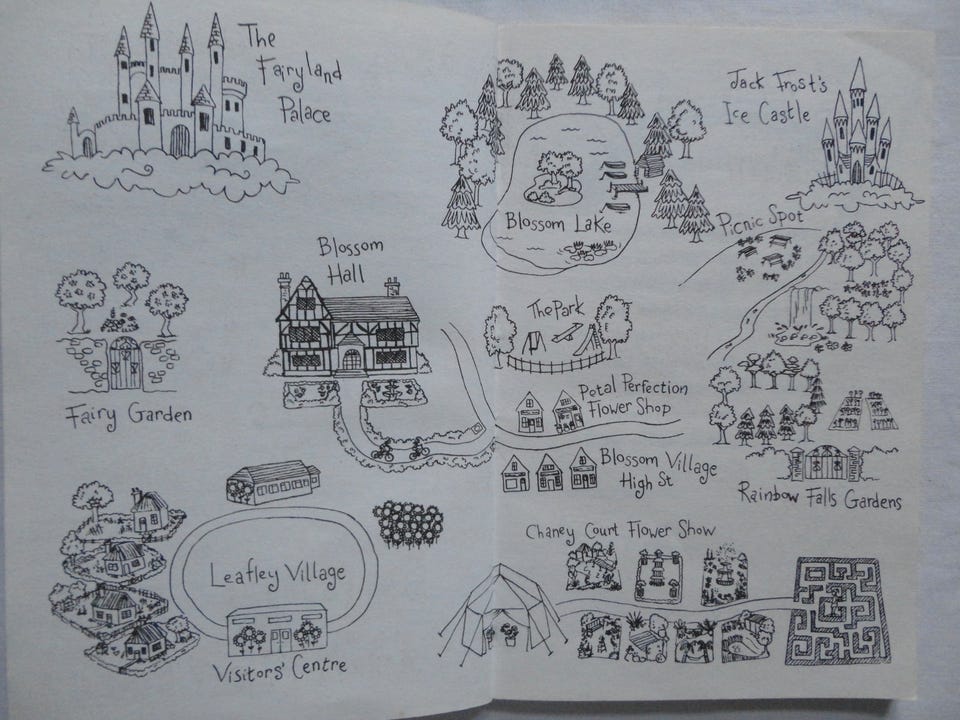 The
Fairyland
Palace
Jack Frost's
Ice Castle
Blossom Lake
Picnic Spot
Blossom
Hall
The Park
Fairy Garden
Petal Perfection
Flower Shop
Blossom Village
High St
Rainbow Falls Gardens
Chaney Court Flower Show
Leafley Village
Visitors' Centre